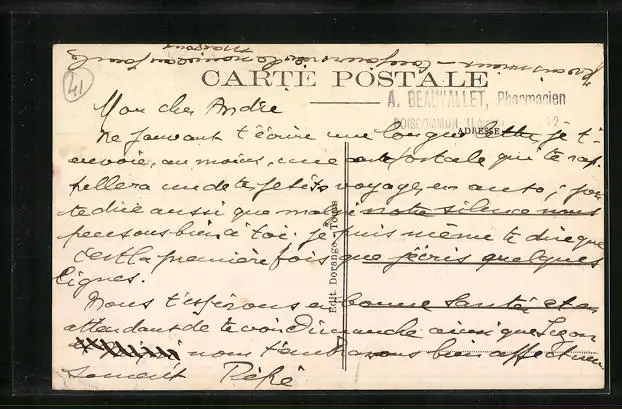 CARTE POSTALE
A. BEAUVALLET, Pharmacien
BOISCOMMUN (Loiret)
ADRESSE
41
Mon cher André
Ne pouvant t'écrire une longue lettre je t'
envoie, au moins, une carte postale qui te rap
pellera un de tes petits voyages en auto; pour
te dire aussi que malgré notre silence nous
pensons bien à toi. je puis même te dire que
c'est la première fois que j'écris quelques
lignes.
Nous t'espérons en bonne santé et en
attendant de te voir Dimanche ainsi que
nous t'embrassons bien affectueu
sement Pépé
Edit. Dorange - Tours